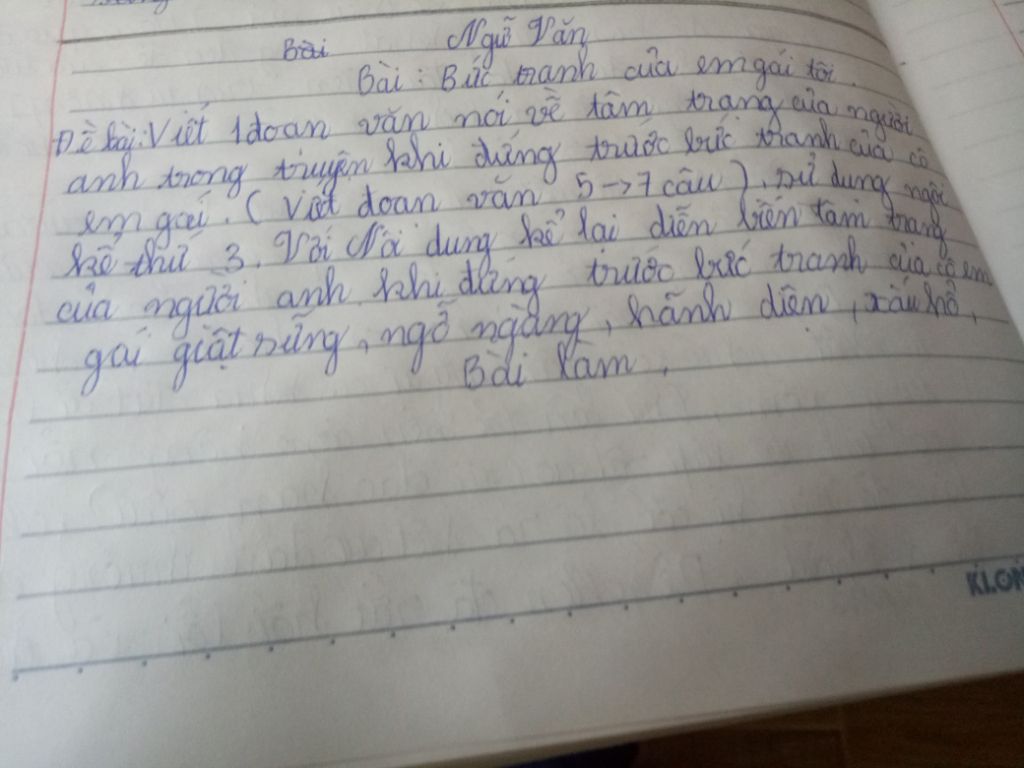 Bài Ngữ Văn
Bài : Bức tranh của em gái tôi.
Đề bài: Viết 1 đoan văn nói về tâm trang của người
anh trong truyện khi đứng trước bức tranh của cô
em gái. ( Viết đoan văn 5 -> 7 câu ). sử dung ngôi
kể thứ 3. Với Nôi dung kể lai diễn biến tâm trang
của người anh khi đứng trước bức tranh của cô em
gái giật sững, ngỡ ngàng, hãnh diện, xấu hổ.
Bài làm.
KLON